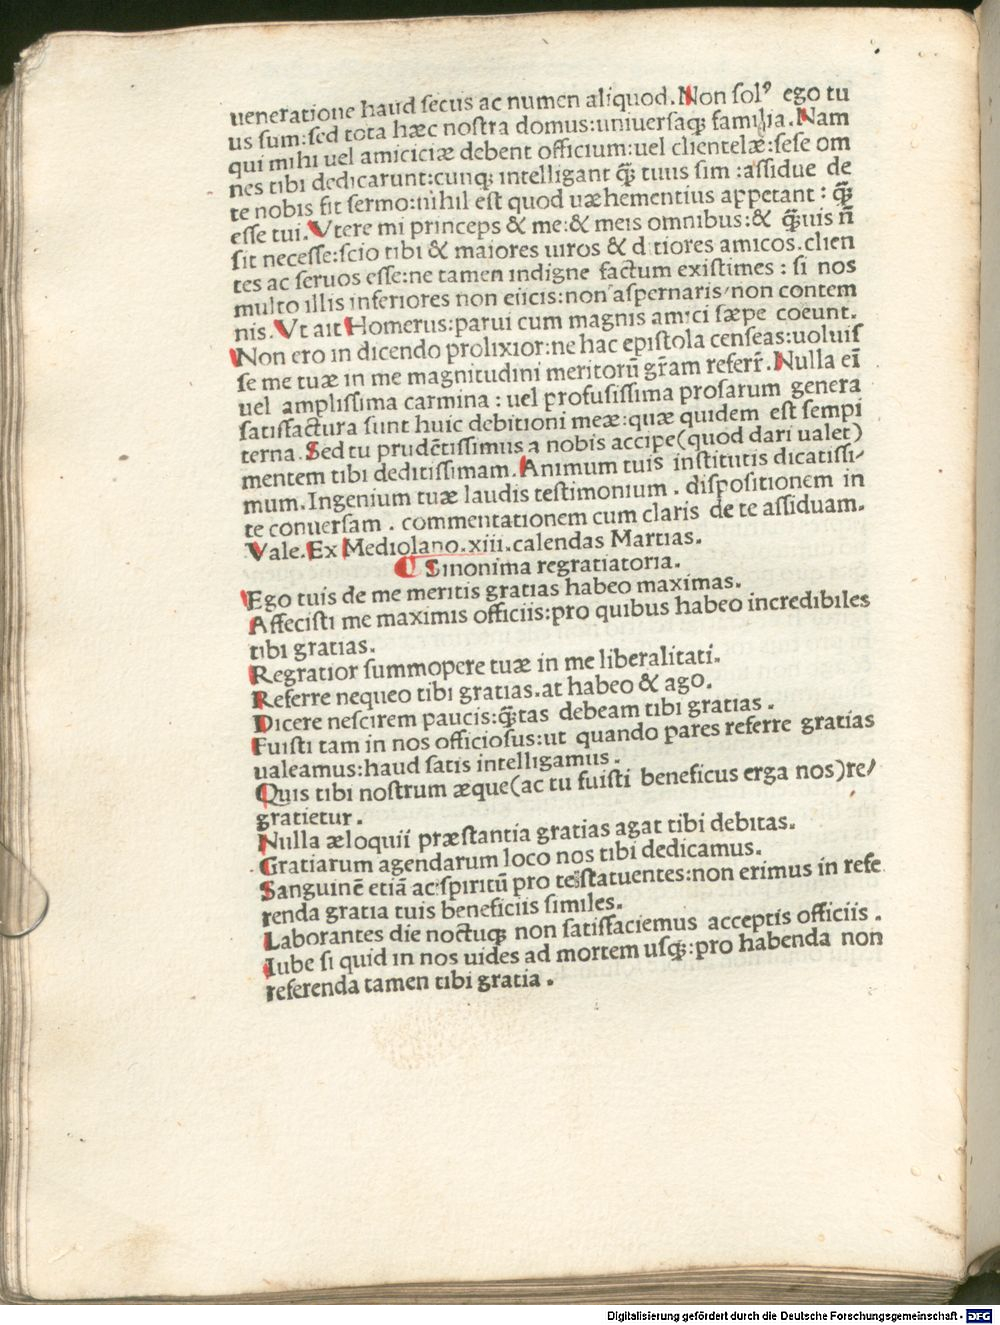 ueneratione haud secus ac numen aliquod. Non solꝰ ego tu
us sum: sed tota hæc nostra domus: uniuersaqꝫ familia. Nam
qui mihi uel amiciciæ debent officium: uel clientelæ: sese om
nes tibi dedicarunt: cunqꝫ intelligant q̃ꝫ tuus sim: assidue de
te nobis fit sermo: nihil est quod uæhementius appetant: q̃ꝫ
esse tui. Vtere mi princeps & me: & meis omnibus: & q̃ꝫuis ñ
sit necesse: scio tibi & maiores uiros & d tiores amicos. clien
tes ac seruos esse: ne tamen indigne factum existimes: si nos
multo illis inferiores non eiicis: non aspernaris/ non contem
nis. Vt ait Homerus: parui cum magnis amici sæpe coeunt.
Non ero in dicendo prolixior: ne hac epistola censeas: uoluis
se me tuæ in me magnitudini meritorũ gr̃am referr̃. Nulla ei̅
uel amplissima carmina: uel profusissima prosarum genera
satisfactura sunt huic debitioni meæ: quæ quidem est sempi
terna. Sed tu prudẽtissimus a nobis accipe (quod dari ualet)
mentem tibi deditissimam. Animum tuis institutis dicatissi/
mum. Ingenium tuæ laudis testimonium. dispositionem in
te conuersam. commentationem cum claris de te assiduam.
Vale. Ex Mediolano. xiii. calendas Martias.
Sinonima regratiatoria.
Ego tuis de me meritis gratias habeo maximas.
Affecisti me maximis officiis: pro quibus habeo incredibiles
tibi gratias.
Regratior summopere tuæ in me liberalitati.
Referre nequeo tibi gratias. at habeo & ago.
Dicere nescirem paucis: q̃ꝫtas debeam tibi gratias.
Fuisti tam in nos officiosus: ut quando pares referre gratias
ualeamus: haud satis intelligamus.
Quis tibi nostrum æque (ac tu fuisti beneficus erga nos) re/
gratietur.
Nulla æloquii præstantia gratias agat tibi debitas.
Gratiarum agendarum loco nos tibi dedicamus.
Sanguinẽ etiã ac spiritũ pro te statuentes: non erimus in refe
renda gratia tuis beneficiis similes.
Laborantes die noctuqꝫ non satisfaciemus acceptis officiis.
Iube si quid in nos uides ad mortem usqꝫ: pro habenda non
referenda tamen tibi gratia.
Digitalisierung gefördert durch die Deutsche Forschungsgemeinschaft - DFG